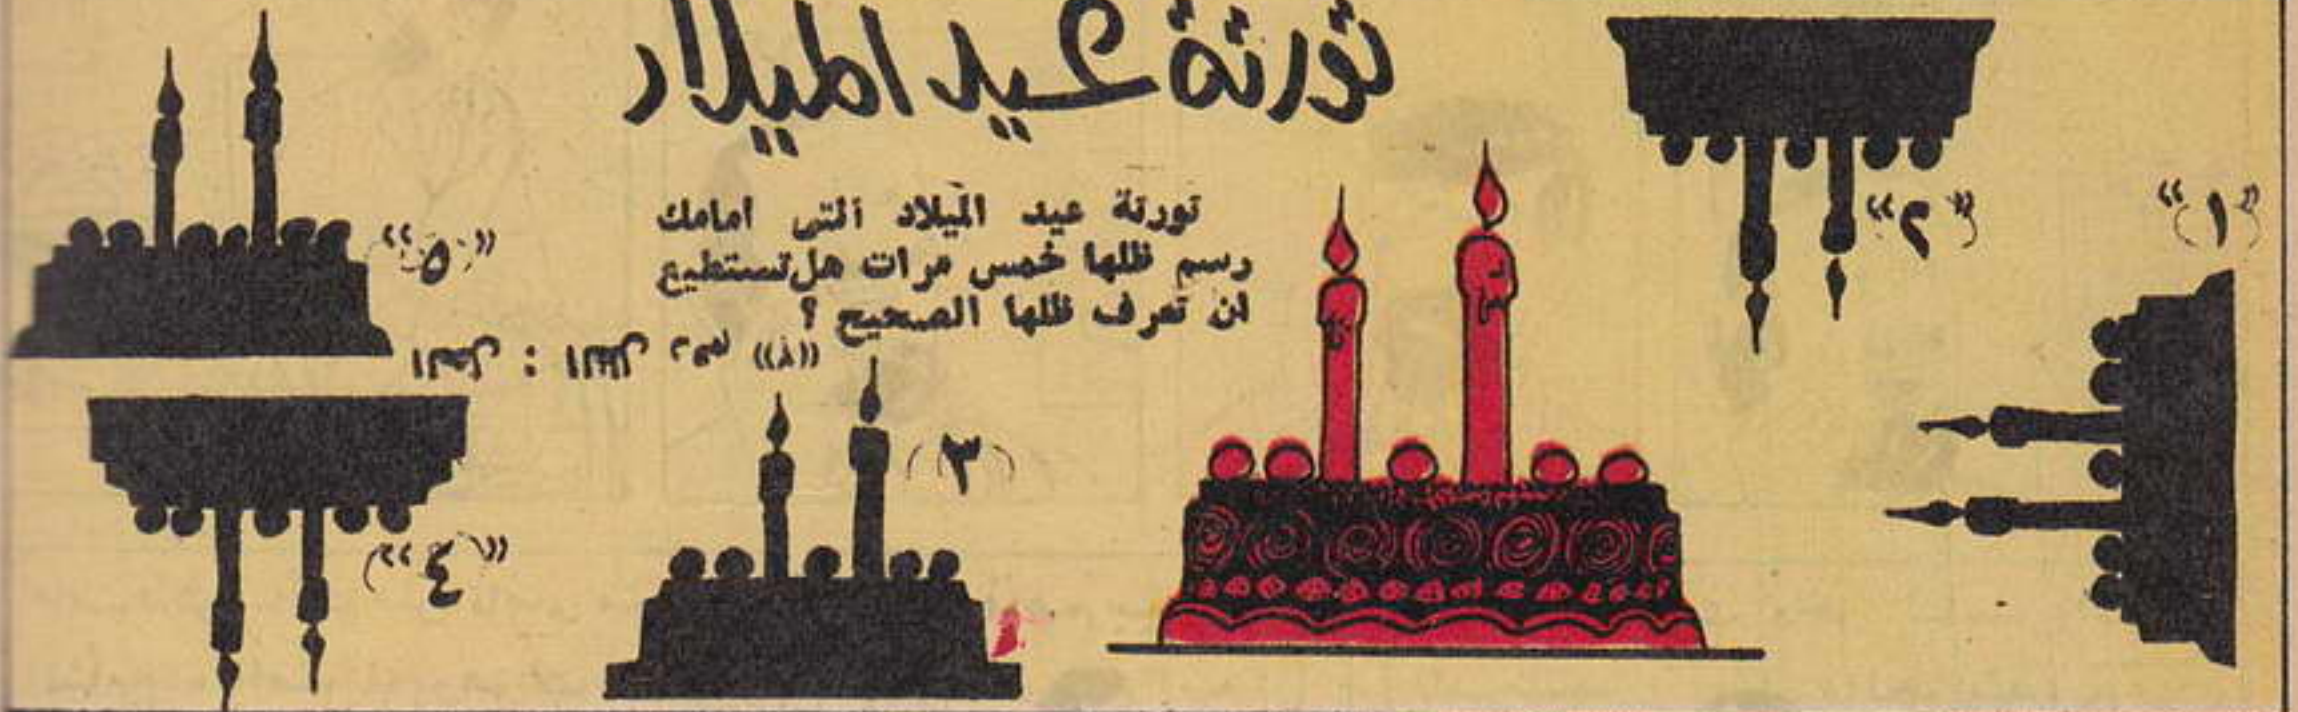 تورتة عيد الميلاد
تورتة عيد الميلاد التى امامك
رسم ظلها خمس مرات هل تستطيع
ان تعرف ظلها الصحيح ؟
الحل : الظل رقم «٢»
«١»
«٢»
(٣)
«٤»
«٥»